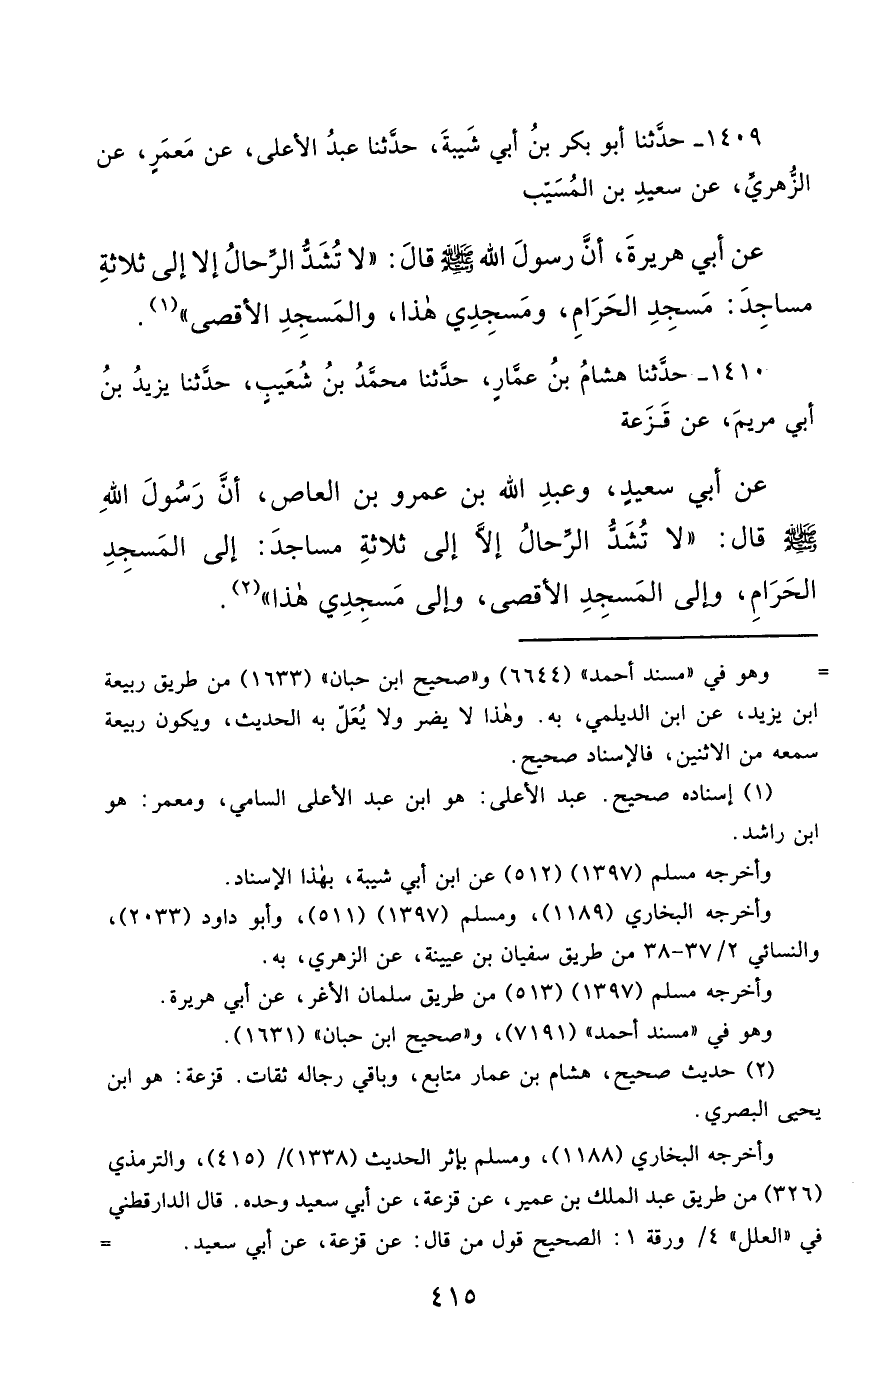 ١٤٠٩ـ حدَّثنا أبو بكر بنُ أبي شَيبةَ، حدَّثنا عبدُ الأعلى، عن مَعمَرٍ، عن
الزُّهريِّ، عن سعيدِ بن المُسَيّب
عن أبي هريرةَ، أنَّ رسولَ الله ﷺ قالَ: «لا تُشَدُّ الرِّحالُ إلا إلى ثلاثةِ
مساجِدَ: مَسجِدِ الحَرَامِ، ومَسجِدِي هٰذا، والمَسجِدِ الأقصى»(١).
١٤١٠ـ حدَّثنا هشامُ بنُ عمَّارٍ، حدَّثنا محمَّدُ بنُ شُعَيبٍ، حدَّثنا يزيدُ بنُ
أبي مريمَ، عن قَزَعة
عن أبي سعيدٍ، وعبدِ الله بن عمرو بن العاص، أنَّ رَسُولَ اللهِ
ﷺ قال: «لا تُشَدُّ الرِّحالُ إلاَّ إلى ثلاثةِ مساجدَ: إلى المَسجِدِ
الحَرَامِ، وإلى المَسجِدِ الأقصى، وإلى مَسجِدِي هٰذا»(٢).
= وهو في «مسند أحمد» (٦٦٤٤) و«صحيح ابن حبان» (١٦٣٣) من طريق ربيعة
ابن يزيد، عن ابن الديلمي، به. وهٰذا لا يضر ولا يُعَلّ به الحديث، ويكون ربيعة
سمعه من الاثنين، فالإسناد صحيح.
(١) إسناده صحيح. عبد الأعلى: هو ابن عبد الأعلى السامي، ومعمر: هو
ابن راشد.
وأخرجه مسلم (١٣٩٧) (٥١٢) عن ابن أبي شيبة، بهٰذا الإسناد.
وأخرجه البخاري (١١٨٩)، ومسلم (١٣٩٧) (٥١١)، وأبو داود (٢٠٣٣)،
والنسائي ٢/ ٣٧-٣٨ من طريق سفيان بن عيينة، عن الزهري، به.
وأخرجه مسلم (١٣٩٧) (٥١٣) من طريق سلمان الأغر، عن أبي هريرة.
وهو في «مسند أحمد» (٧١٩١)، و«صحيح ابن حبان» (١٦٣١).
(٢) حديث صحيح، هشام بن عمار متابع، وباقي رجاله ثقات. قزعة: هو ابن
يحيى البصري.
وأخرجه البخاري (١١٨٨)، ومسلم بإثر الحديث (١٣٣٨)/ (٤١٥)، والترمذي
(٣٢٦) من طريق عبد الملك بن عمير، عن قزعة، عن أبي سعيد وحده. قال الدارقطني
في «العلل» ٤/ ورقة ١: الصحيح قول من قال: عن قزعة، عن أبي سعيد. =
٤١٥